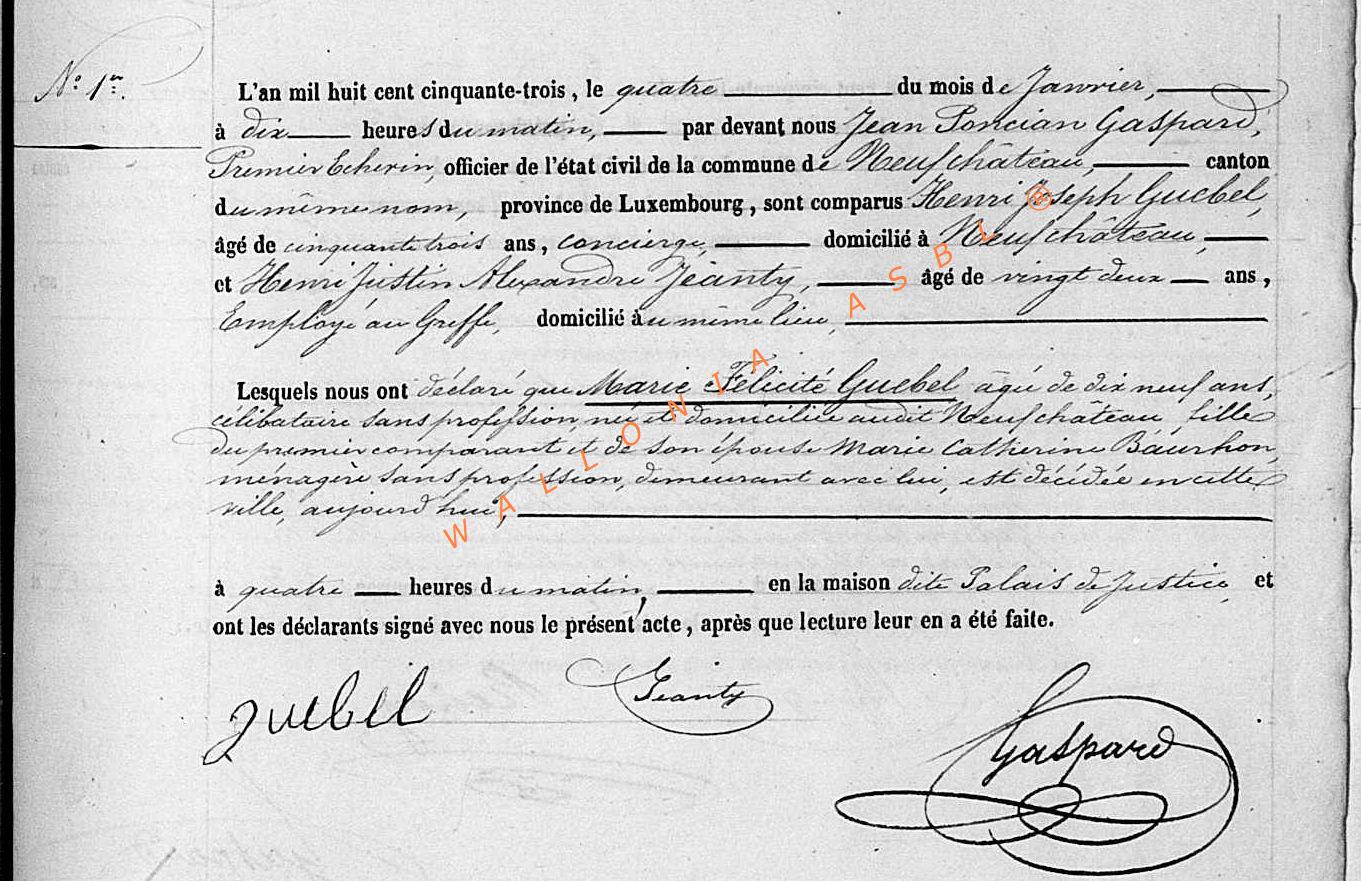 N° 1er.
L'an mil huit cent cinquante-trois, le quatre du mois de Janvier,
à dix heures du matin, par devant nous Jean Poncian Gaspard,
Premier Echevin, officier de l'état civil de la commune de Neufchâteau, canton
du même nom, province de Luxembourg, sont comparus Henri Joseph Guebel,
âgé de cinquante trois ans, concierge, domicilié à Neufchâteau,
et Henri Justin Alexandre Jeanty, âgé de vingt deux ans,
Employé au Greffe, domicilié au même lieu,
Lesquels nous ont déclaré que Marie Félicité Guebel âgée de dix neuf ans,
célibataire sans profession, née et domiciliée audit Neufchâteau, fille
du premier comparant et de son épouse Marie Catherine Baurhon,
ménagère sans profession, demeurant avec lui, est décédée en cette
ville, aujourd'hui,
à quatre heures du matin, en la maison dite Palais de Justice, et
ont les déclarants signé avec nous le présent acte, après que lecture leur en a été faite.
guebel Jeanty Gaspard
WALLONIA ASBL ®